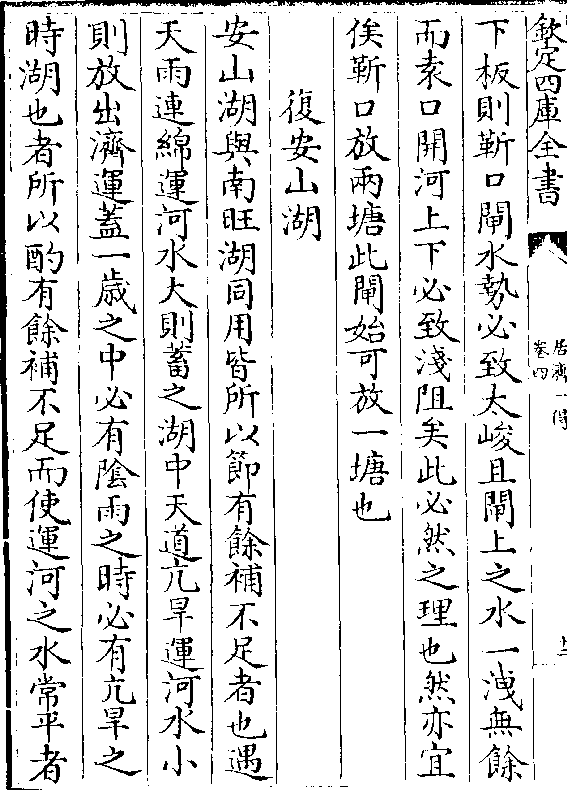 欽定四庫全書
居濟一得
卷四
十二
下板則靳口閘水勢必致太峻且閘上之水一洩無餘
而袁口開河上下必致淺阻矣此必然之理也然亦宜
俟靳口放兩塘此閘始可放一塘也
復安山湖
安山湖與南旺湖同用皆所以節有餘補不足者也遇
天雨連綿運河水大則蓄之湖中天道亢旱運河水小
則放出濟運蓋一歲之中必有隂雨之時必有亢旱之
時湖也者所以酌有餘補不足而使運河之水常平者